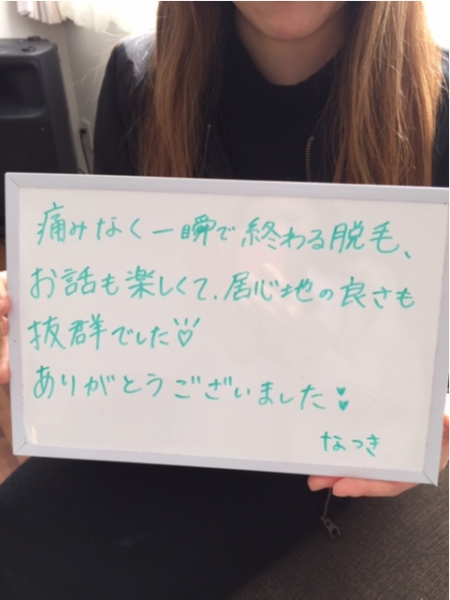 痛みなく一瞬で終わる脱毛、
お話も楽しくて、居心地の良さも
抜群でした♡
ありがとうございました♥♥
なつき